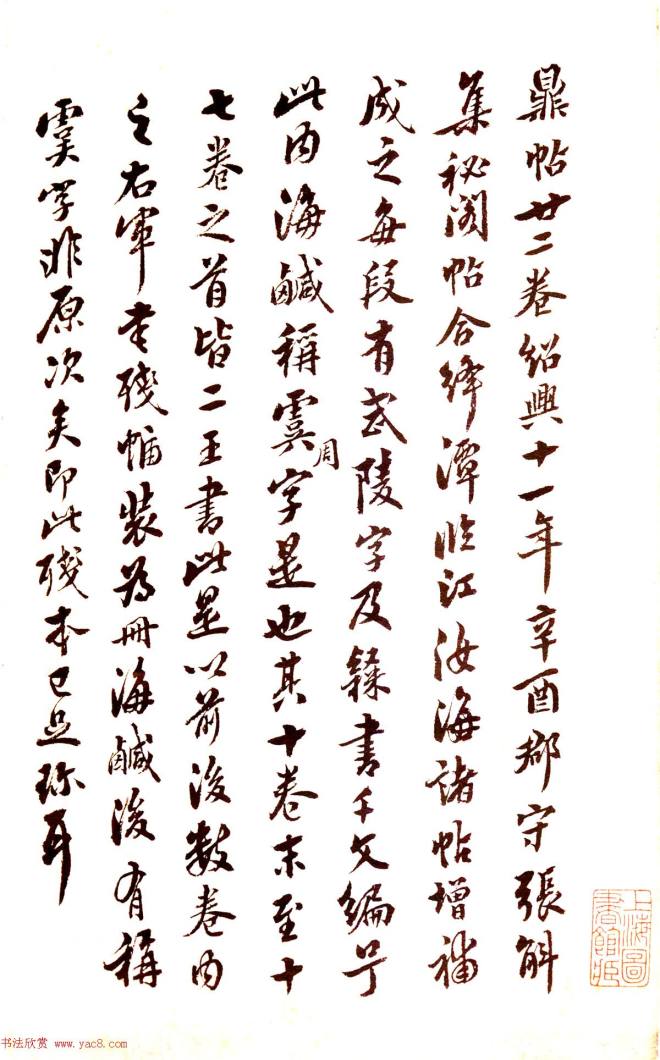 鼎帖廿二卷紹興十一年辛酉郡守張斛
集秘閣帖合絳潭臨江汝海諸帖增補
成之每段有武陵字及隸書千文編号
此內海鹹稱虞周字是也其十卷末至十
七卷之首皆二王書此是以前後數卷內
之右軍書殘幅裝為冊海鹹後有稱
虞字非原次矣即此殘本已足珍耳
上海圖書館藏
书法欣赏 www.yac8.com